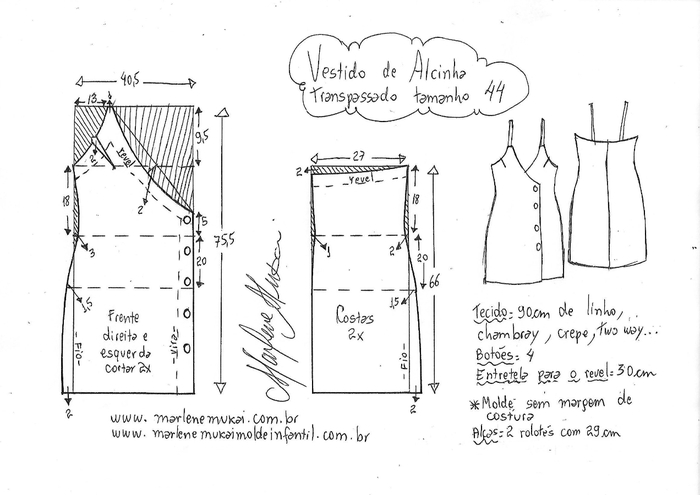 Vestido de Alcinha
e transpassado tamanho 44
40,5
13
9,5
2
revel
2
18
5
3
20
75,5
1,5
Frente
direita e
esquerda
cortar 2x
Fio
vira
2
27
2
revel
18
1
2
20
66
1,5
Costas
2x
Fio
2
Marlene Mukai
Tecido: 90cm de linho,
chambray, crepe, two way...
Botões: 4
Entretela para o revel: 30cm
*Molde sem margem de
costura
Alças: 2 rolotês com 29cm
www.marlenemukai.com.br
www.marlenemukaimoldeinfantil.com.br